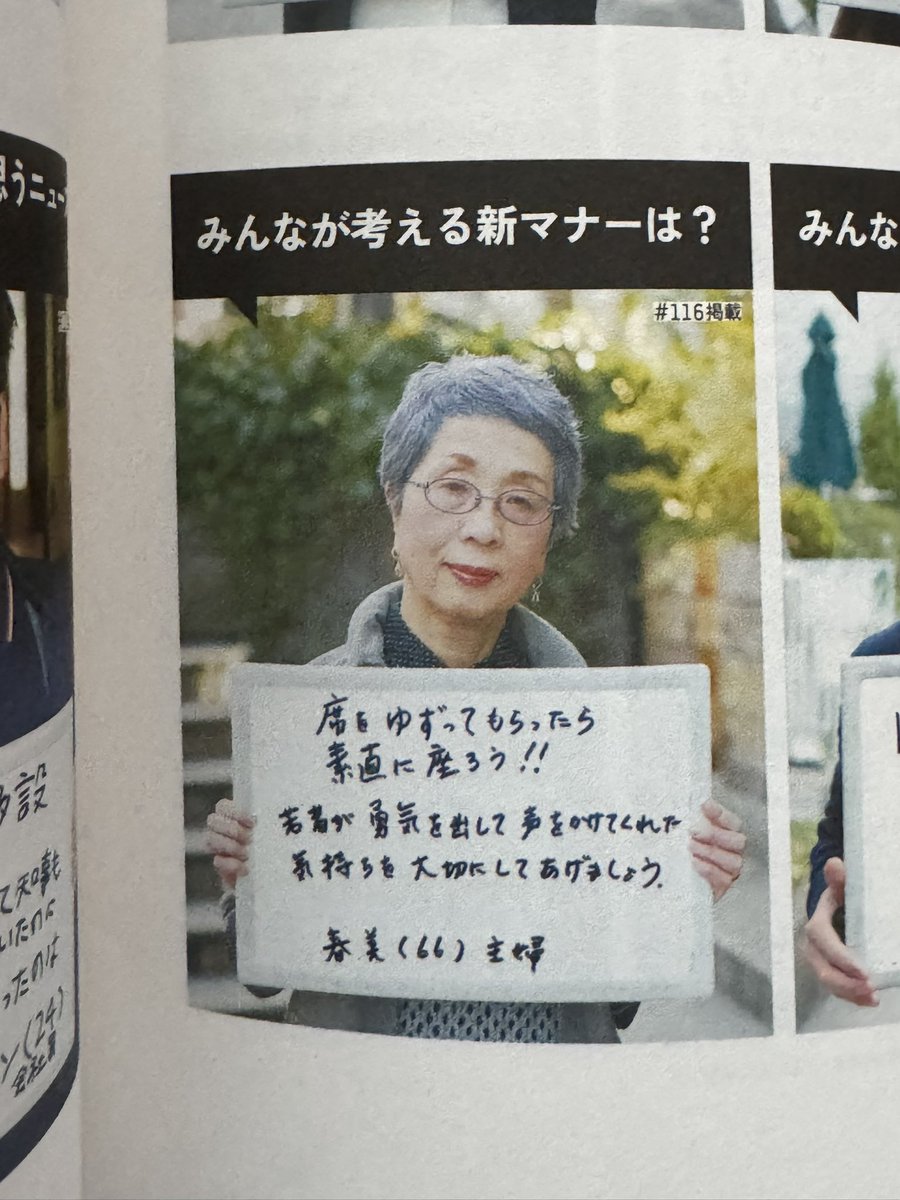 思うニュー
みんなが考える新マナーは？
みんな
#116掲載
席をゆずってもらったら
素直に座ろう!!
若者が勇気を出して声をかけてくれた
気持ちを大切にしてあげましょう。
春美(66)主婦
設
て知事も
いたのに
ったのは
ン(24)
会社員